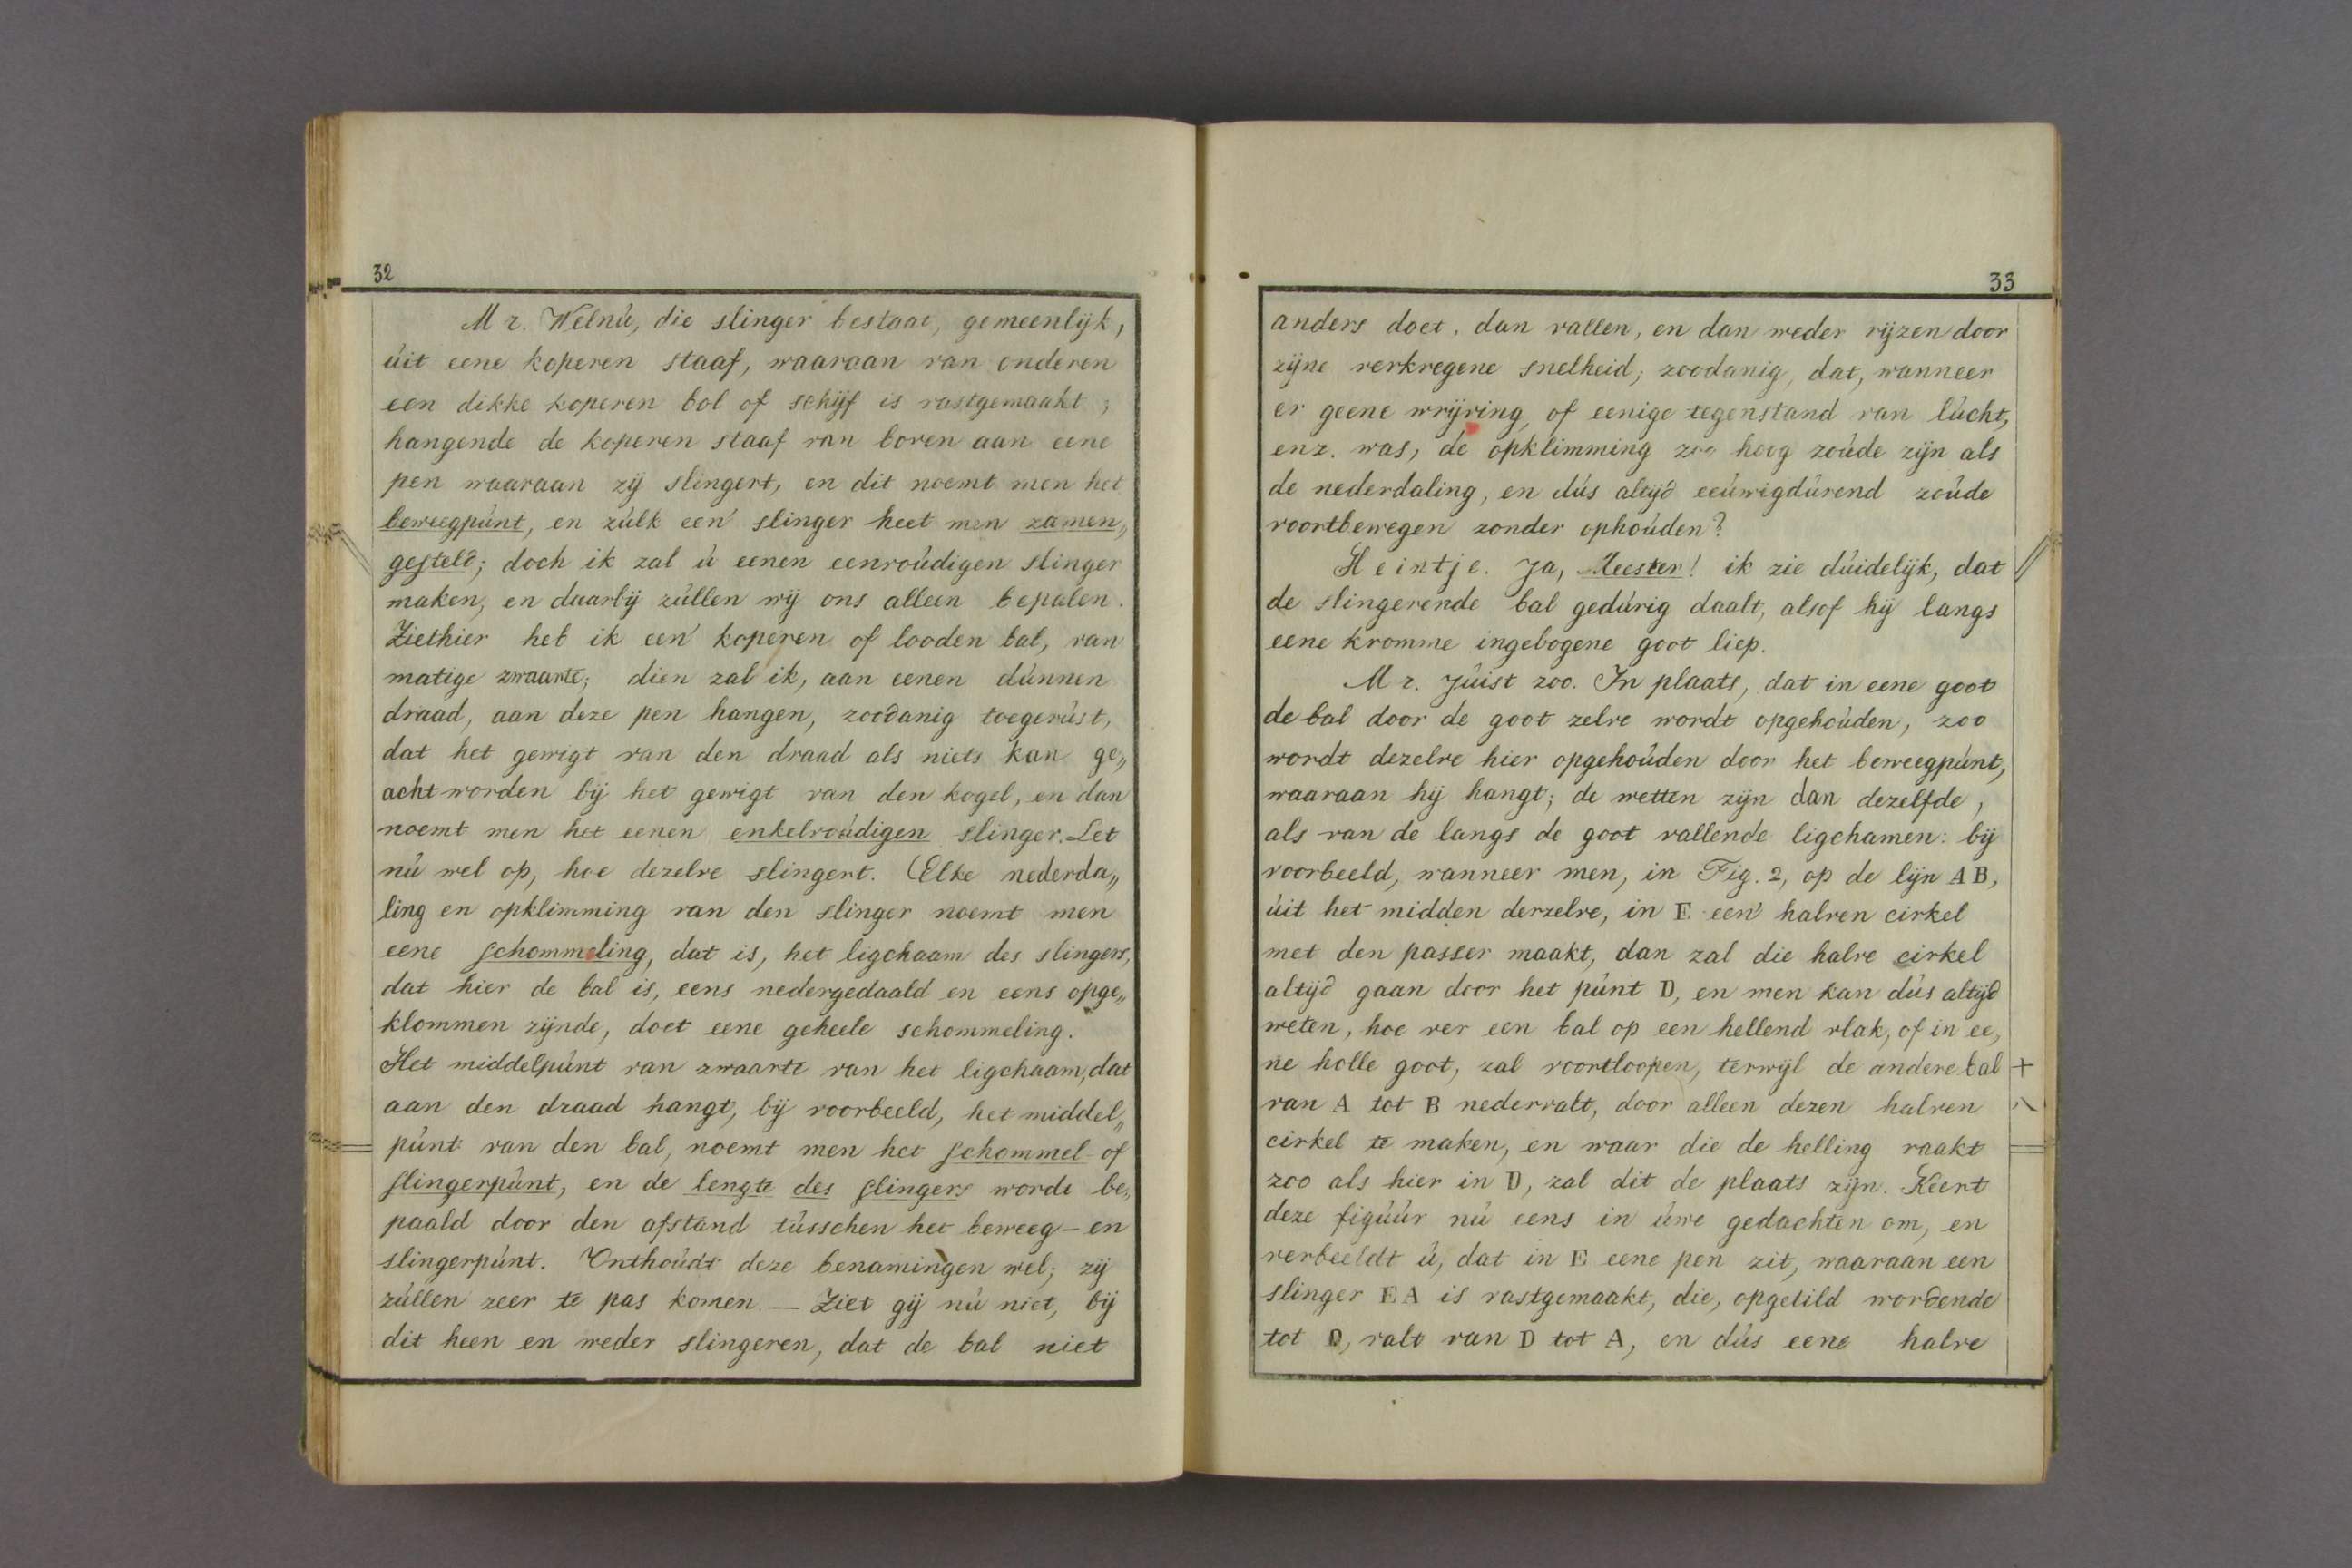 32
Mr. Welnú, die slinger bestaat, gemeenlijk,
úit eene koperen staaf, waaraan van onderen
een dikke koperen bol of schijf is vastgemaakt;
hangende de koperen staaf van boven aan eene
pen waaraan zij slingert, en dit noemt men het
beweegpúnt, en zúlk een' slinger heet men zamen„
gesteld; doch ik zal ú eenen eenvoúdigen slinger
maken, en daarbij zúllen wij ons alleen bepalen.
Ziethier heb ik een' koperen of looden bal, van
matige zwaarte; dien zal ik, aan eenen dúnnen
draad, aan deze pen hangen, zoodanig toegerúst,
dat het gewigt van den draad als niets kan ge„
acht worden bij het gewigt van den kogel, en dan
noemt men het eenen enkelvoúdigen slinger. Let
nú wel op, hoe dezelve slingert. Elke nederda„
ling en opklimming van den slinger noemt men
eene schommeling, dat is, het ligchaam des slingers,
dat hier de bal is, eens nedergedaald en eens opge„
klommen zijnde, doet eene geheele schommeling.
Het middelpúnt van zwaarte van het ligchaam, dat
aan den draad hangt, bij voorbeeld, het middel„
púnt van den bal, noemt men het schommel- of
slingerpúnt, en de lengte des slingers wordt be„
paald door den afstand tússchen het beweeg- en
slingerpúnt. Onthoúdt deze benamingen wel; zij
zúllen zeer te pas komen. — Ziet gij nú niet, bij
dit heen en weder slingeren, dat de bal niet
33
anders doet, dan vallen, en dan weder rijzen door
zijne verkregene snelheid; zoodanig, dat, wanneer
er geene wrijving, of eenige tegenstand van lúcht,
enz. was, de opklimming zoo hoog zoúde zijn als
de nederdaling, en dús altijd eeúwigdúrend zoúde
voortbewegen zonder ophoúden?
Heintje. Ja, Meester! ik zie dúidelijk, dat
de slingerende bal gedúrig daalt, alsof hij langs
eene kromme ingebogene goot liep.
Mr. Júist zoo. In plaats, dat in eene goot
de bal door de goot zelve wordt opgehoúden, zoo
wordt dezelve hier opgehoúden door het beweegpúnt,
waaraan hij hangt; de wetten zijn dan dezelfde,
als van de langs de goot vallende ligchamen: bij
voorbeeld, wanneer men, in Fig. 2, op de lijn AB,
úit het midden derzelve, in E een' halven cirkel
met den passer maakt, dan zal die halve cirkel
altijd gaan door het púnt D, en men kan dús altijd
weten, hoe ver een bal op een hellend vlak, of in ee„
ne holle goot, zal voortloopen, terwijl de andere bal +
van A tot B nedervalt, door alleen dezen halven
cirkel te maken, en waar die de helling raakt
zoo als hier in D, zal dit de plaats zijn. Keert
deze figúúr nú eens in úwe gedachten om, en
verbeeldt ú, dat in E eene pen zit, waaraan een
slinger EA is vastgemaakt, die, opgetild wordende
tot D, valt van D tot A, en dús eene halve